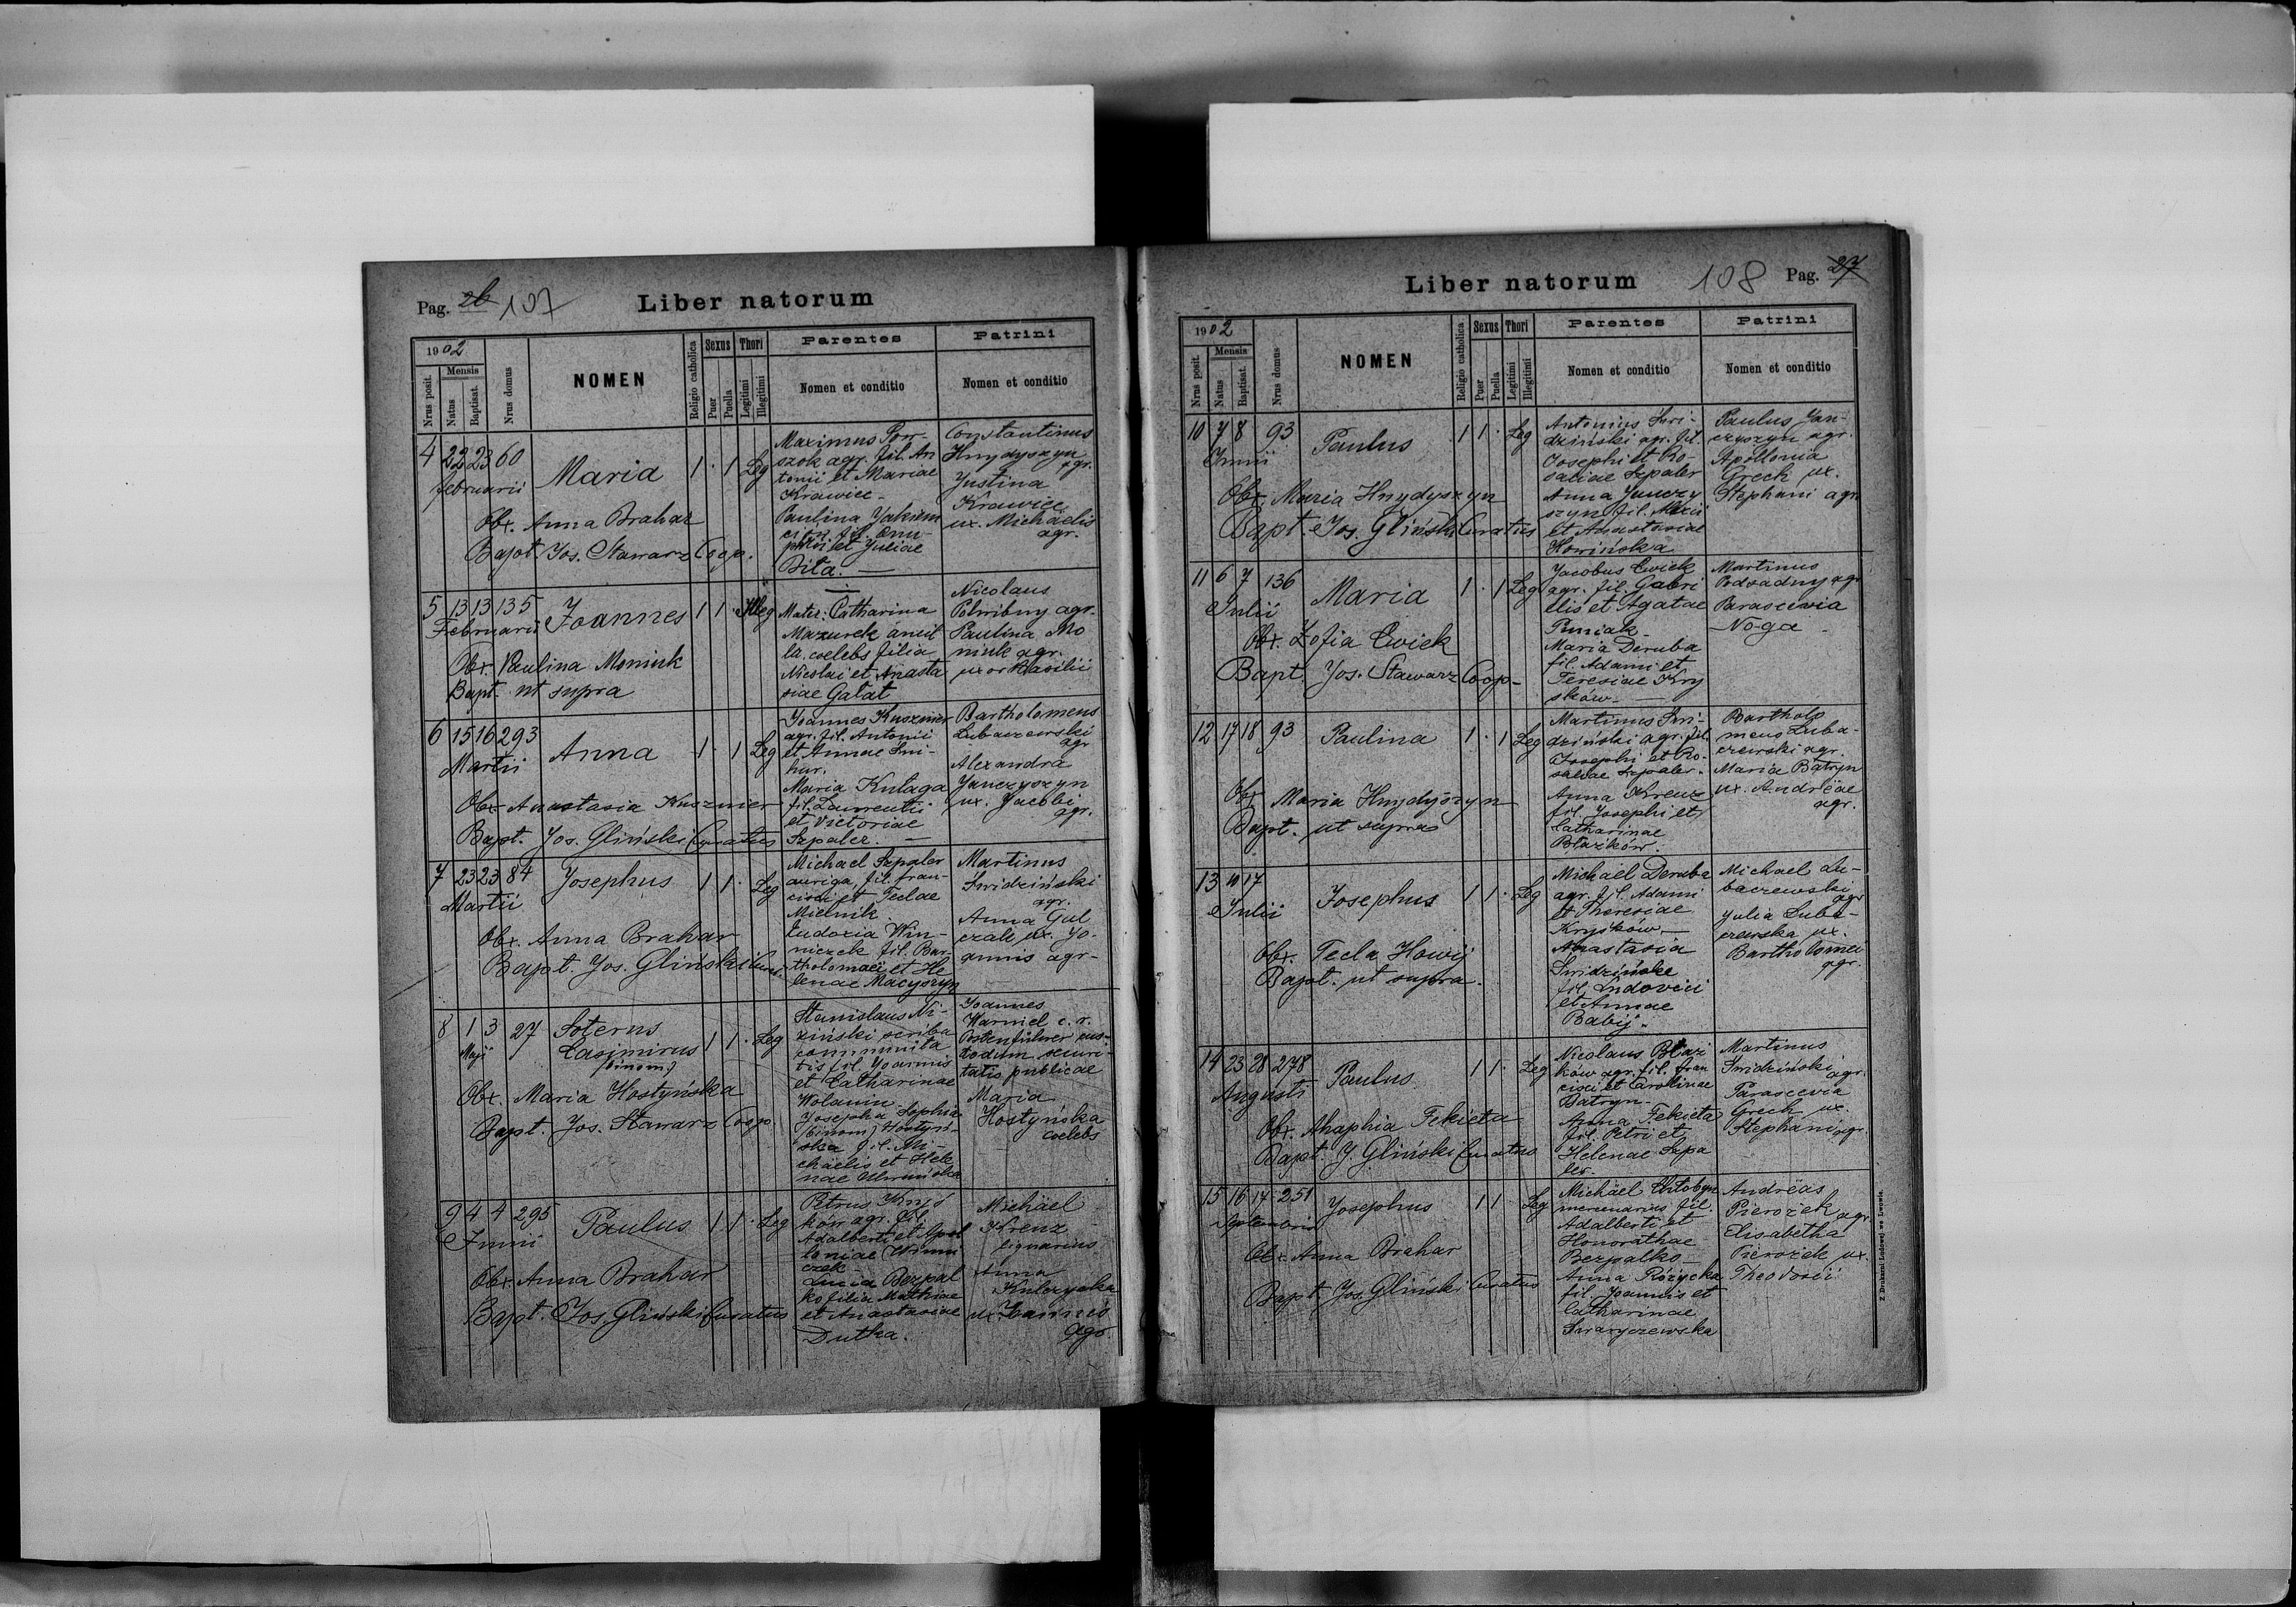 Pag. 26 107 Liber natorum
1902
Nrus posit.
Mensis
Natus
Baptisat.
Nrus domus
NOMEN
Religio catholica
Sexus
Puer
Puella
Thori
Legitimi
Illegitimi
Parentes
Nomen et conditio
Patrini
Nomen et conditio
4 22 23 60
februarii
Maria
1 · 1 Leg
Obx. Anna Brahar
Bapt. Jos. Stawarz Coop.
Maximus Son
szok agr. fil. An
tonii et Mariae
Krawiec -
Paulina Yakiem
fil. Onu-
phrii et Juliae
Dita. —
Constantinus
Hnydyszyn
agr.
Justina
Krawiec
ux. Michaelis
agr.
5 13 13 135
Februarii
Joannes
1 1 · Illeg
Obx. Paulina Moniuk
Bapt. ut supra
—
Mater: Catharina
Mazurek ancil
la. coelebs filia
Nicolai et Anasta
siae Galat
Nicolaus
Polwibny agr.
Paulina Mo
niuk agr.
uxor Basilii
6 15 16 293
Martii
Anna
1 · 1 Leg
Obx Anastasia Kusznier
Bapt. Jos. Gliński Curatus
Joannes Kusznier
agr. fil. Antonii
et Annae Smi-
hur.
Maria Kulaga
fil. Laurentii
et Victoriae
Szpaler. —
Bartholomeus
Lubaczewski
agr
Alexandra
Janczyszyn
ux. Jacobi
agr.
7 23 23 84
Martii
Josephus
1 1 · Leg
Obx. Anna Brahar
Bapt. Jos. Gliński
Michael Szpaler
auriga fil. fran-
cisci et Teclae
Mielnik
Eudoxia Win-
niczek fil. Bar-
tholomaei et He
lenae Macyszyn
Martinus
Świdziński
agr.
Anna Gul
czak ux. Jo-
annis agr-
8 1 3 27
Maji
Soterus
Casimirus
(binom.)
1 1 · Leg
Obx. Maria Hostyńska
Bapt. Jos. Stawarz Coop.
Stanislaus Ni-
ziński scriba
communita
tis fil. Joannis
et Catharinae
Wolanin
Josepha Sophia
(binom) Hostyń-
ska fil. Mi-
chaelis et Hele
nae
Joannes
Warniel c. r.
Postenführer cus-
todum securi-
tatis publicae
Maria
Hostyńska
coelebs
9 4 4 295
Junii
Paulus
1 1 · Leg
Obx Anna Brahar
Bapt. Jos. Gliński Curatus
Petrus Krys
ków agr. fil.
Adalberti et Apol
loniae Winni
czek -
Lucia Bezpal
ko filia Mathiae
et Anastasiae
Dutka.
Michäel
Krenz
lignarius
Anna
Kulczycka
ux. Joannis
agr.
Liber natorum 108 Pag. 27
1902
Nrus posit.
Mensis
Natus
Baptisat.
Nrus domus
NOMEN
Religio catholica
Sexus
Puer
Puella
Thori
Legitimi
Illegitimi
Parentes
Nomen et conditio
Patrini
Nomen et conditio
10 7 8 93
Junii
Paulus
1 1 · Leg
Obx. Maria Hnydyszyn
Bapt. Jos. Gliński Curatus
Antonius Świ-
dziński agr. fil.
Josephi et Ro-
saliae Szpaler
Anna Janczy
szyn fil. Alexii
et Anastasiae
Howińska
Paulus Jan-
czyszyn agr.
Apollonia
Grech ux.
Stephani agr.
11 6 7 136
Julii
Maria
1 · 1 Leg
Obx. Zofia Cwiek
Bapt. Jos. Stawarz Coop-
Jacobus Cwiek
agr. fil. Gabri
elis et Agatae
Puniak -
Maria Deruba
fil. Adami et
Teresiae Kry
sków-
Martinus
Podsadny agr
Parascewia
Noga -
12 17 18 93
Paulina
1 · 1 Leg
Obx Maria Hnydyszyn
Bapt. ut supra
Martinus Świ-
dziński agr. fil.
Josephi et Ro-
saliae Szpaler.
Anna Krenz
fil. Josephi et
Catharinae
Błażków.
Bartholo
meus Luba-
czewski agr.
Maria Batryn
ux. Andreae
agr.
13 10 17
Julii
Josephus
1 1 · Leg
Obx. Tecla Howij
Bapt. ut supra.
Michäel Deruba
agr. fil. Adami
et Theresiae
Krysków —
Anastasia
Świdzińska
fil. Ludovici
et Annae
Babij.
Michael Lu-
baczewski
agr
Julia Luba-
czewska ux.
Bartholomei
agr.
14 23 28 278
Augusti
Paulus
1 1 · Leg
Obx. Ahaphia Fekieta
Bapt. J. Gliński Curatus
Nicolaus Błaż
ków agr. fil. fran
cisci et Carolinae
Batryn-
Anna Fekieta
fil. Petri et
Helenae Szpa
ler.
Martinus
Świdziński
agr.
Parascevia
Grech ux.
Stephani agr.
15 16 17 251
Septembris
Josephus
1 1 · Leg
Obx. Anna Brahar
Bapt. Jos. Gliński Curatus
Michäel
mercenarius fil.
Adalberti et
Honorathae
Bezpalko -
Anna Różycka
fil. Joannis et
Catharinae
Swaryczewska
Andreas
Pierożek agr.
Elisabetha
Pierożek ux.
Theodosii
Z Drukarni Ludowej we Lwowie.